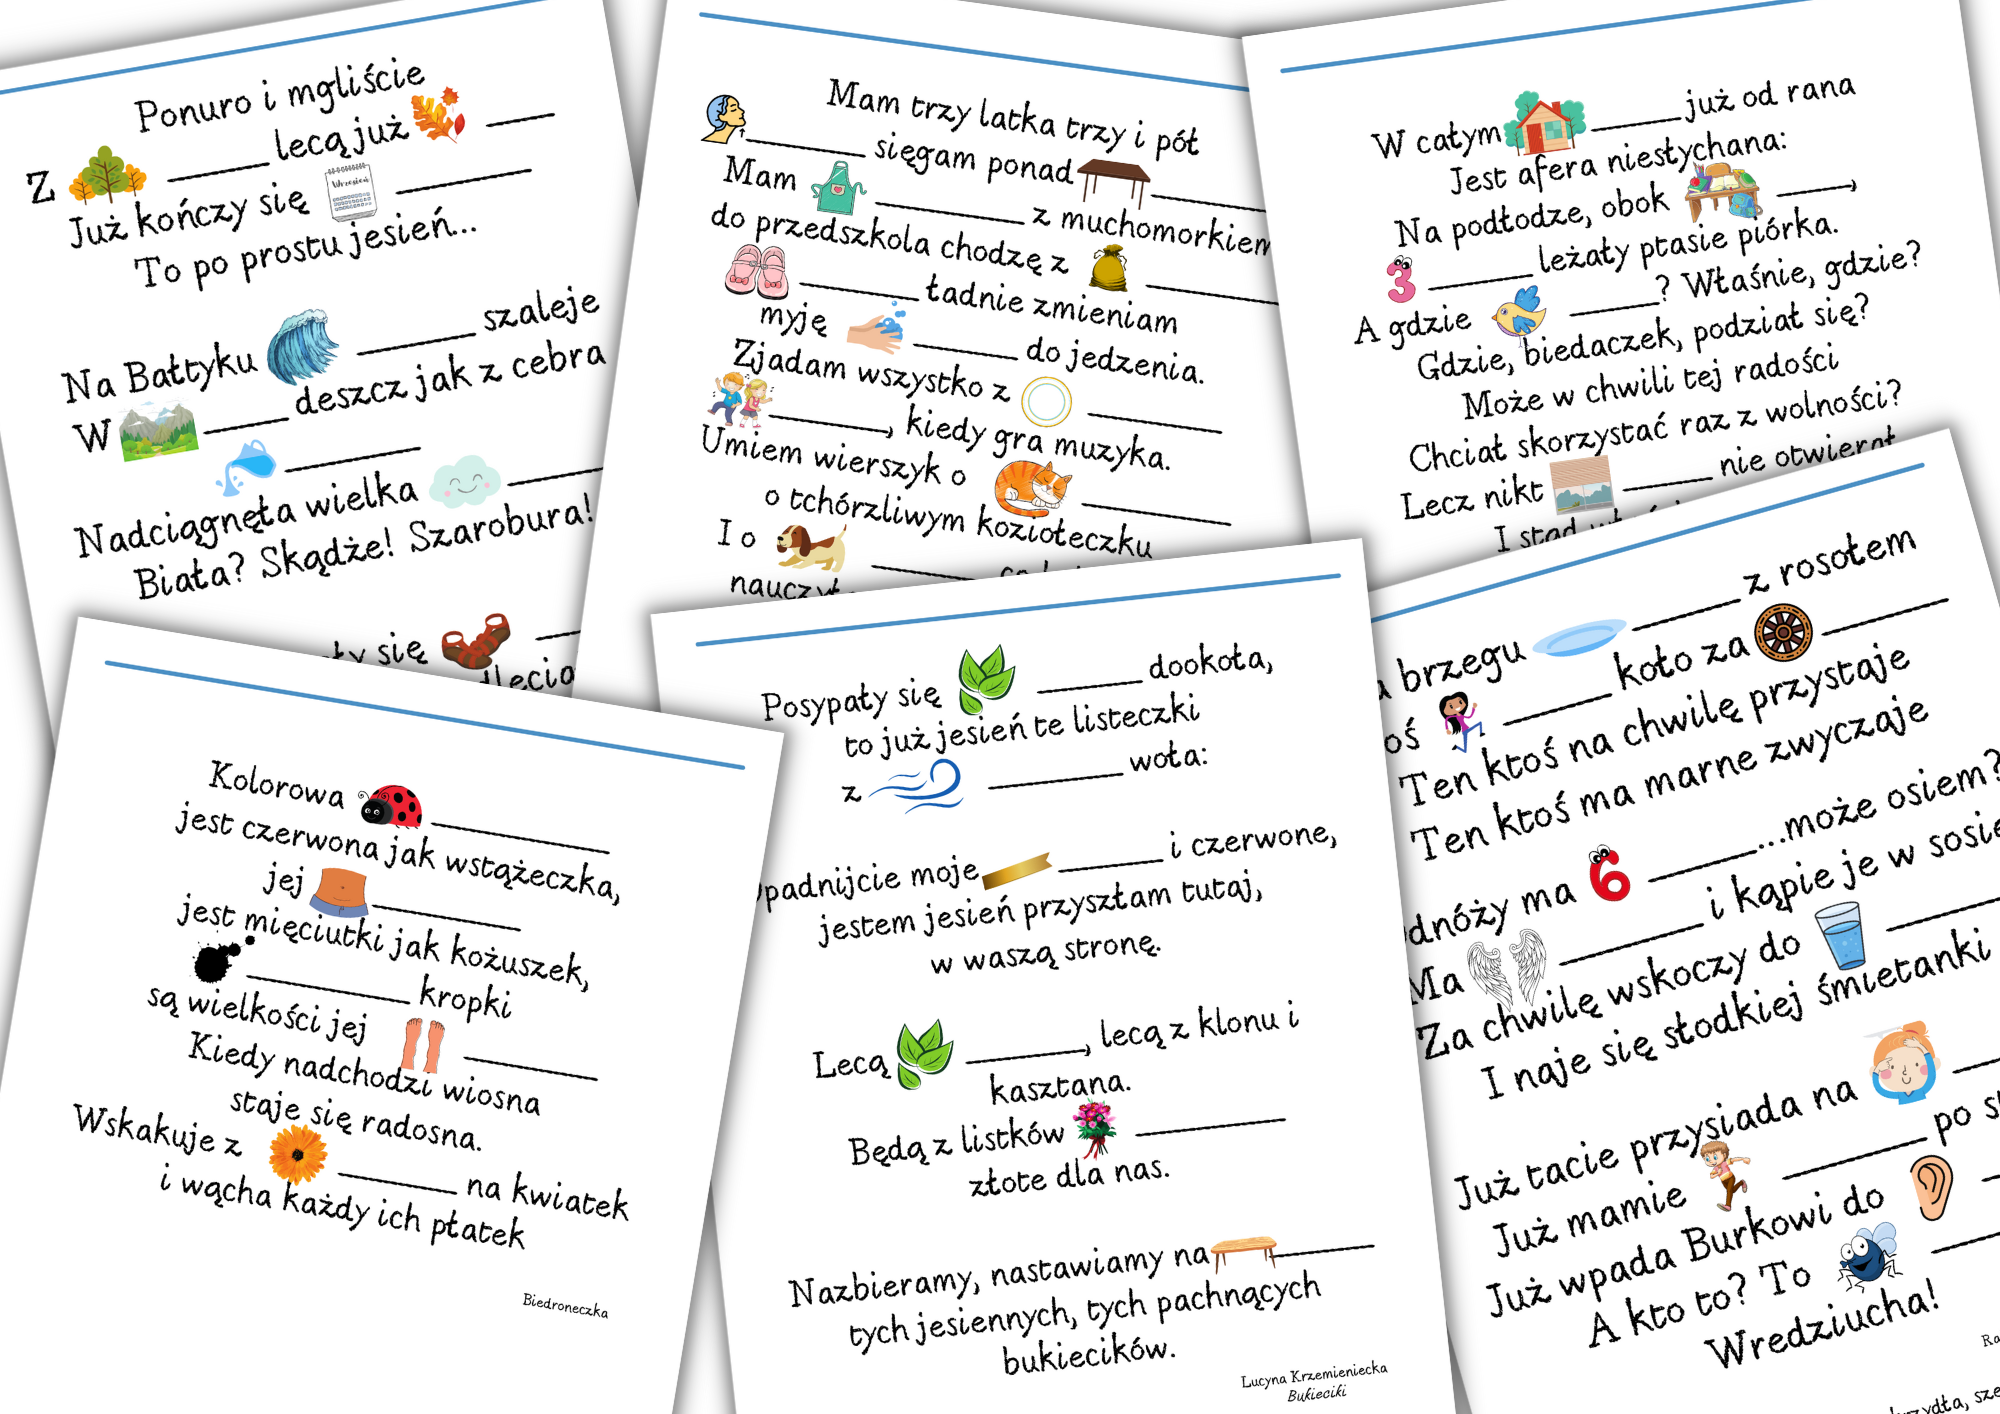 Ponuro i mgliście
Z ______ lecą już ______
Już kończy się Wrzesień ______
To po prostu jesień...
Na Bałtyku ______ szaleje
W ______ deszcz jak z cebra
______
Nadciągnęta wielka ______
Biała? Skądże! Szarobura!
się ______
Mam trzy latka trzy i pół
______ sięgam ponad ______
Mam ______ z muchomorkiem
do przedszkola chodzę z ______
______ ładnie zmieniam
myję ______ do jedzenia.
Zjadam wszystko z ______
______, kiedy gra muzyka.
Umiem wierszyk o ______
o tchórzliwym koziołeczku
I o ______
W całym ______ już od rana
Jest afera niesłychana:
Na podłodze, obok ______,
3 ______ leżały ptasie piórka.
A gdzie ______? Właśnie, gdzie?
Gdzie, biedaczek, podział się?
Może w chwili tej radości
Chciał skorzystać raz z wolności?
Lecz nikt ______ nie otwierał
I stąd
Kolorowa ______
jest czerwona jak wstążeczka,
jej ______
jest mięciutki jak kożuszek,
______ kropki
są wielkości jej ______
Kiedy nadchodzi wiosna
staje się radosna.
Wskakuje z ______ na kwiatek
i wącha każdy ich płatek
Biedroneczka
Posypały się ______ dookoła,
to już jesień te listeczki
z ______ woła:
padnijcie moje ______ i czerwone,
jestem jesień przyszłam tutaj,
w waszą stronę.
Lecą ______, lecą z klonu i
kasztana.
Będą z listków ______
złote dla nas.
Nazbieramy, nastawiamy na ______
tych jesiennych, tych pachnących
bukiecików.
Lucyna Krzemieniecka
Bukieciki
brzegu ______ z rosołem
______ koło za ______
Ten ktoś na chwilę przystaje
Ten ktoś ma marne zwyczaje
ma 6 ______...może osiem?
Ma ______ i kąpie je w
Za chwilę wskoczy do ______
I naje się słodkiej śmietanki
Już tacie przysiada na ______
Już mamie ______ po
Już wpada Burkowi do ______
A kto to? To ______
Wredziucha!